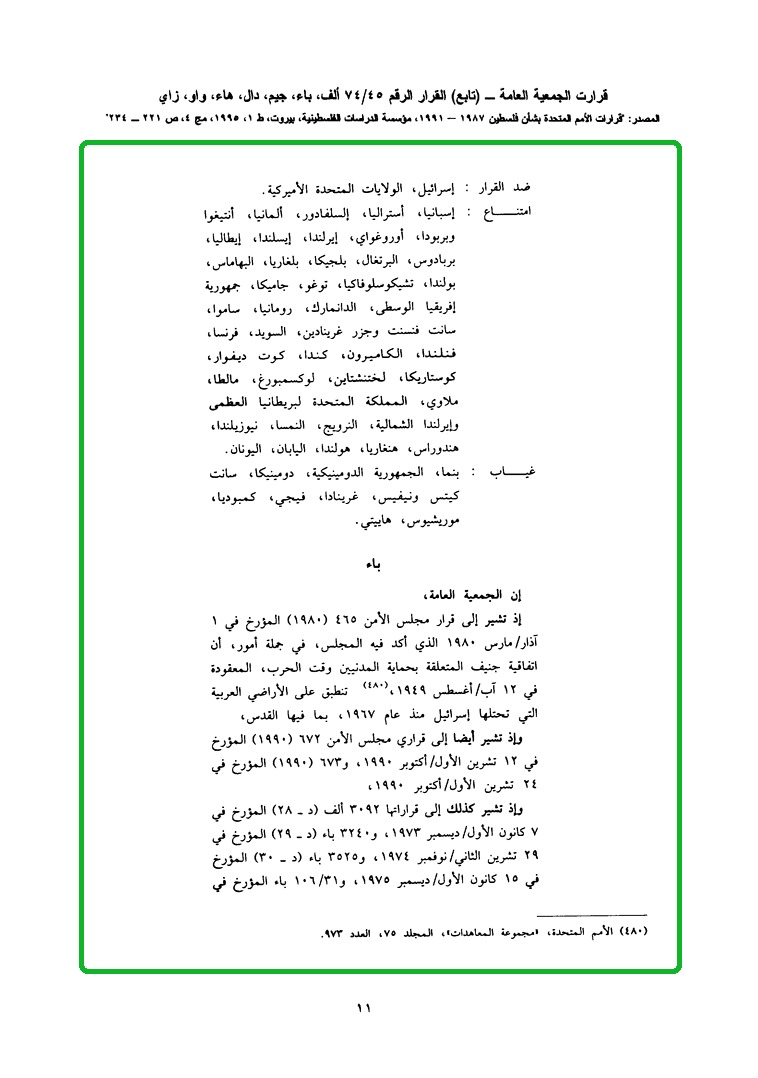 قرارت الجمعية العامة ــ (تابع) القرار الرقم ٧٤/٤٥ ألف، باء، جيم، دال، هاء، واو، زاي
المصدر: "قرارات الأمم المتحدة بشأن فلسطين ١٩٨٧ – ١٩٩١، مؤسسة الدراسات الفلسطينية، بيروت، ط ١، ١٩٩٥، مج ٤، ص ٢٢١ – ٢٣٤"
ضد القرار : إسرائيل، الولايات المتحدة الأميركية.
امتنــــاع : إسبانيا، أستراليا، إلسلفادور، ألمانيا، أنتيغوا
وبربودا، أوروغواي، إيرلندا، إيسلندا، إيطاليا،
بربادوس، البرتغال، بلجيكا، بلغاريا، البهاماس،
بولندا، تشيكوسلوفاكيا، توغو، جاميكا، جمهورية
إفريقيا الوسطى، الدانمارك، رومانيا، ساموا،
سانت فنسنت وجزر غرينادين، السويد، فرنسا،
فنلندا، الكاميرون، كندا، كوت ديفوار،
كوستاريكا، لختنشتاين، لوكسمبورغ، مالطا،
ملاوي، المملكة المتحدة لبريطانيا العظمى
وإيرلندا الشمالية، النرويج، النمسا، نيوزيلندا،
هندوراس، هنغاريا، هولندا، اليابان، اليونان.
غيــــاب : بنما، الجمهورية الدومينيكية، دومينيكا، سانت
كيتس ونيفيس، غرينادا، فيجي، كمبوديا،
موريشيوس، هاييتي.
باء
إن الجمعية العامة،
إذ تشير إلى قرار مجلس الأمن ٤٦٥ (١٩٨٠) المؤرخ في ١
آذار/مارس ١٩٨٠ الذي أكد فيه المجلس، في جملة أمور، أن
اتفاقية جنيف المتعلقة بحماية المدنيين وقت الحرب، المعقودة
في ١٢ آب/أغسطس ١٩٤٩،(٤٨٠) تنطبق على الأراضي العربية
التي تحتلها إسرائيل منذ عام ١٩٦٧، بما فيها القدس،
وإذ تشير أيضا إلى قراري مجلس الأمن ٦٧٢ (١٩٩٠) المؤرخ
في ١٢ تشرين الأول/أكتوبر ١٩٩٠، و٦٧٣ (١٩٩٠) المؤرخ في
٢٤ تشرين الأول/أكتوبر ١٩٩٠،
وإذ تشير كذلك إلى قراراتها ٣٠٩٢ ألف (د ـ ٢٨) المؤرخ في
٧ كانون الأول/ديسمبر ١٩٧٣، و٣٢٤٠ باء (د ـ ٢٩) المؤرخ في
٢٩ تشرين الثاني/نوفمبر ١٩٧٤، و٣٥٢٥ باء (د ـ ٣٠) المؤرخ
في ١٥ كانون الأول/ديسمبر ١٩٧٥، و١٠٦/٣١ باء المؤرخ في
(٤٨٠) الأمم المتحدة، «مجموعة المعاهدات»، المجلد ٧٥، العدد ٩٧٣.
١١